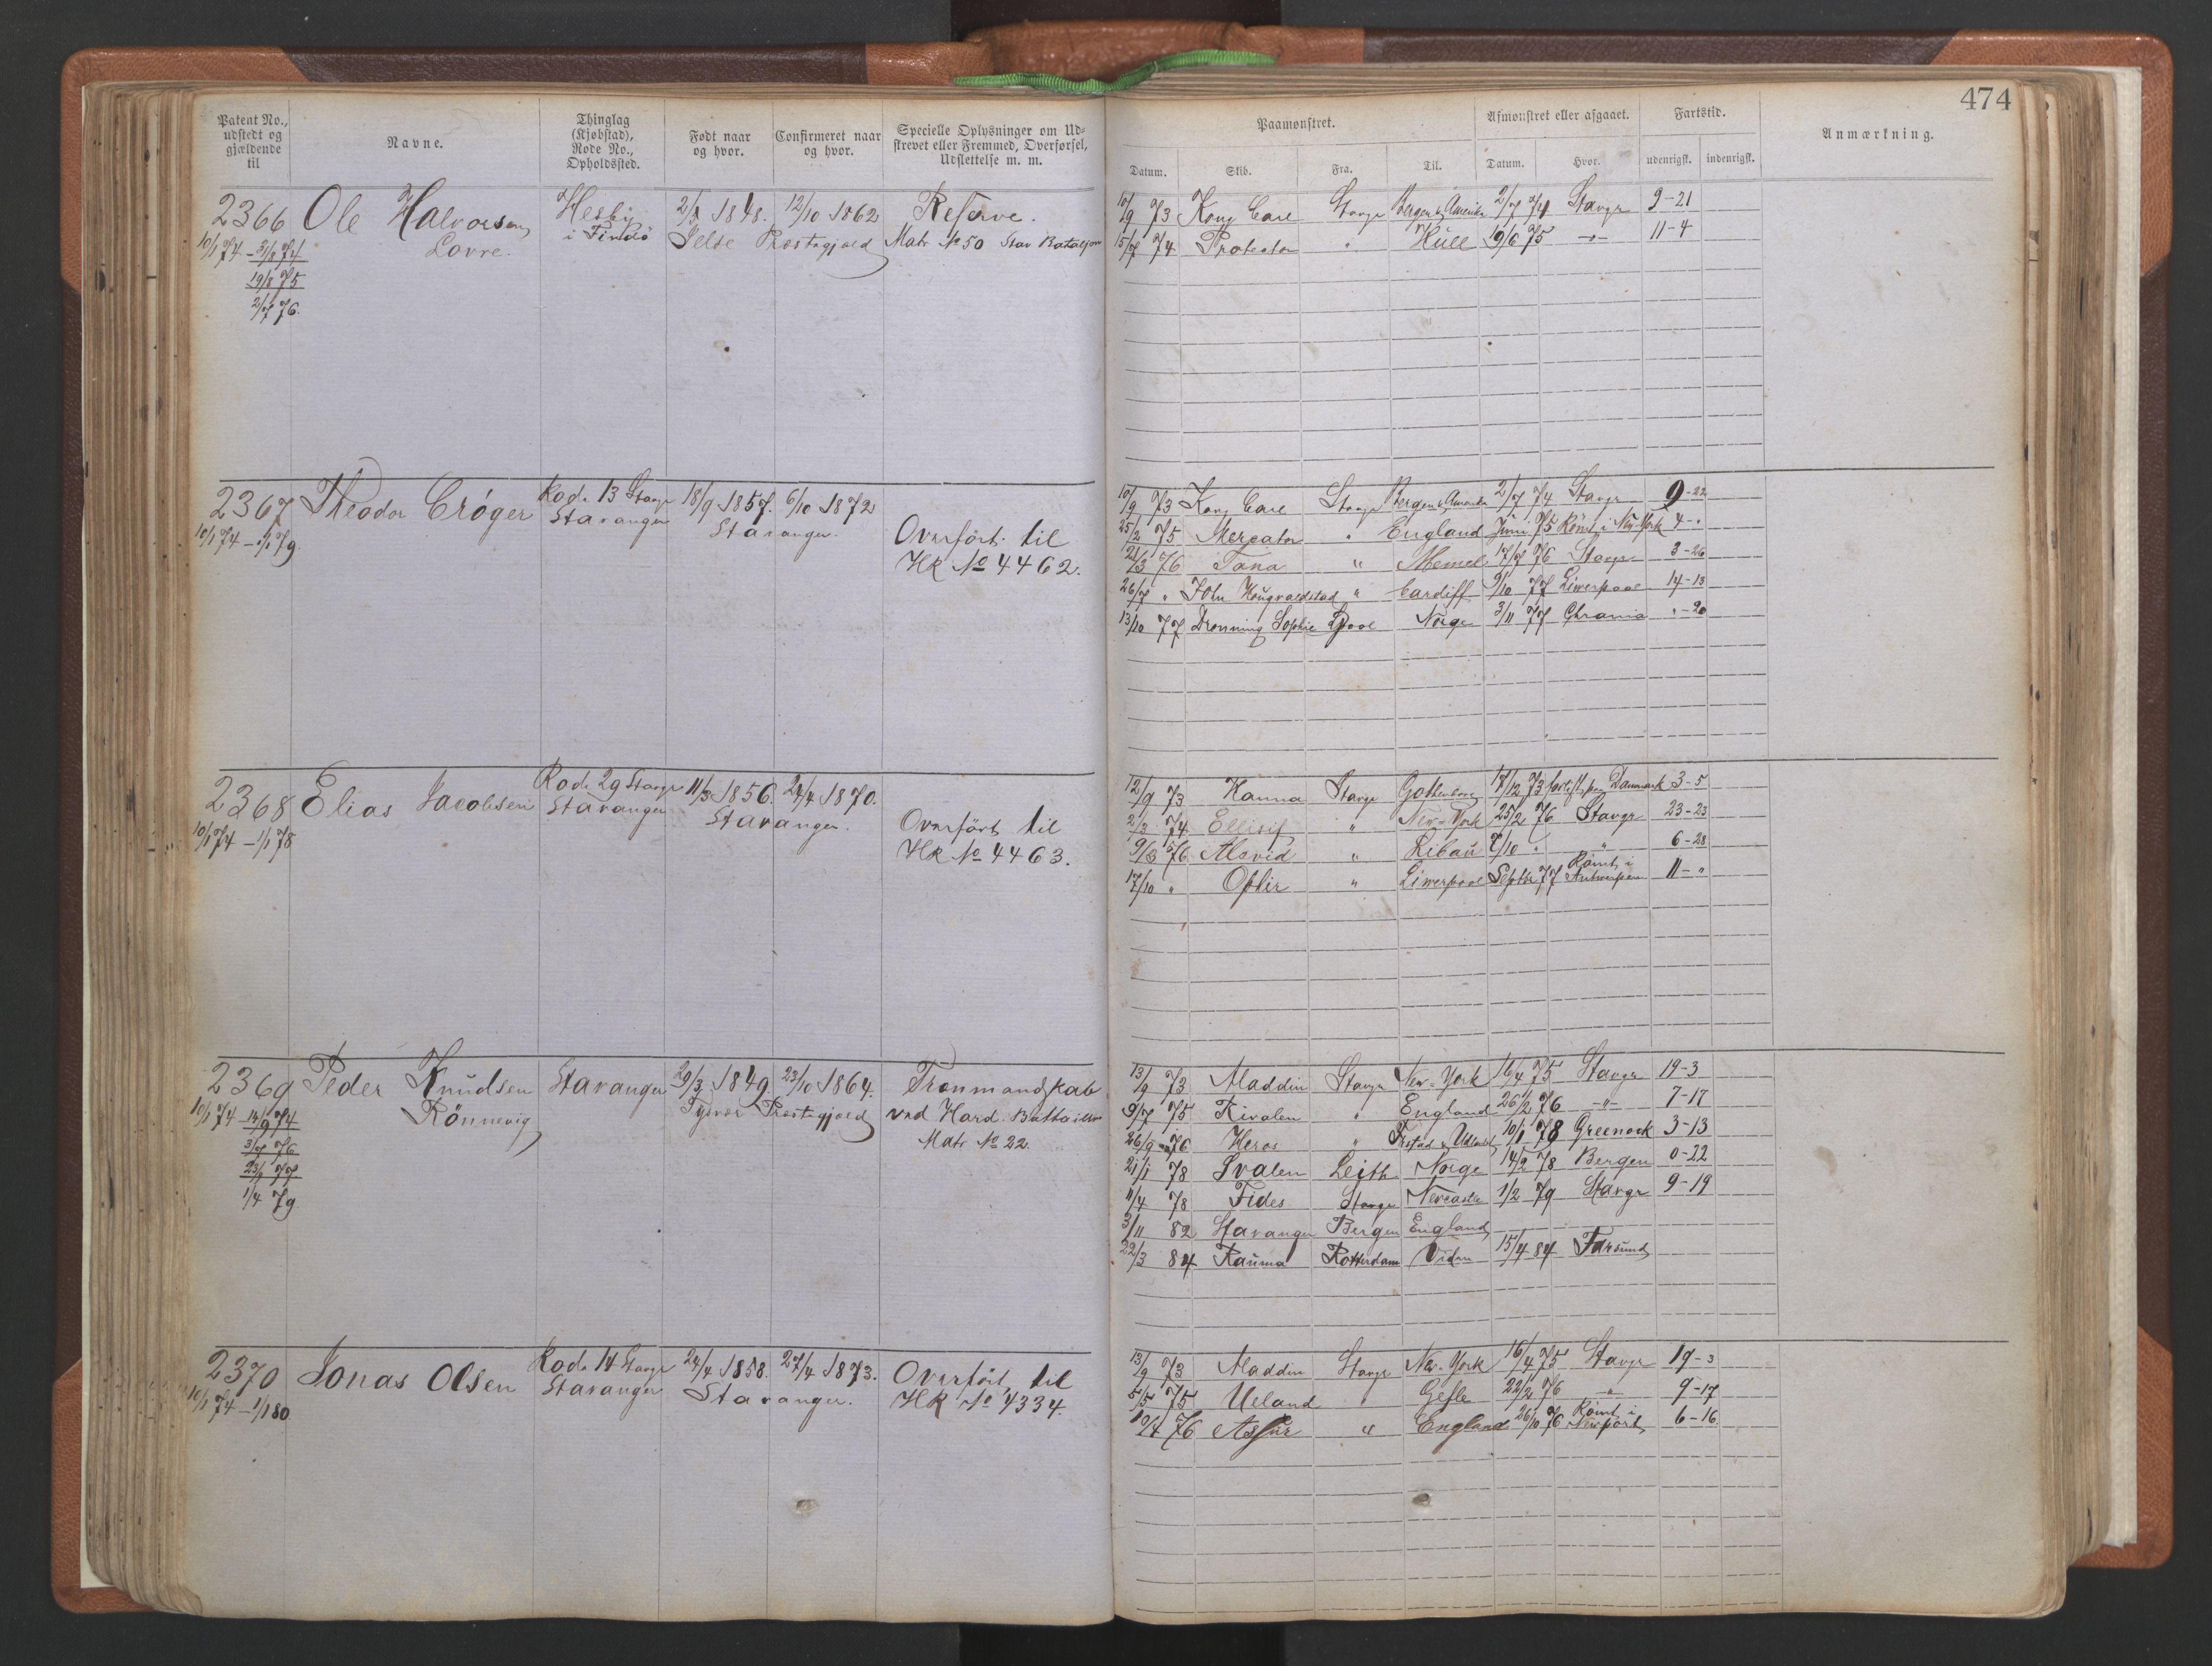 474
Patent No., udstedt og gjældende til
Navne.
Thinglag (Kjøbstad), Rode No., Opholdssted.
Født naar og hvor.
Confirmeret naar og hvor.
Specielle Oplysninger om Udskrevet eller Fremmed, Overførsel, Udslettelse m. m.
Paamønstret.
Afmønstret eller afgaaet.
Fartstid.
Anmærkning.
Datum. Skib. Fra. Til. Datum. Hvor. udenrigsk. indenrigsk.
2366 Ole Halvorsen Hesby 2/8 1848. 12/10 1862 Reserve.
10/1 74 Lovre. i Findö Jelse Præstegjæld Matr No 50 Stav Bataljon
19/8 75
2/7 76.
10/9 73 Kong Carl Stavgr Bergen & Amerika 2/7 74 Stavgr 9-21
15/7 74 Protector " Hull 19/6 75 -"- 11-4
2367 Theodor Cröger Rode 13 Stavgr 18/9 1857. 6/10 1872
10/1 74 - 1/1 79. Stavanger Stavanger.
Overfört til
HR No 4462.
10/9 73 Kong Carl Stavgr Bergen & Amerika 2/7 74 Stavgr 9-22
25/2 75 Mercator " England Juni 75 Römt i New-York 4-"
21/3 76 Tana " Memel 17/7 76 Stavgr 3-26
26/7 " John Haugvaldstad " Cardiff 9/10 77 Liwerpool 14-13
13/10 77 Dronning Sophie Lpool Norge 3/11 77 Chrania "-20
2368 Elias Jacobsen Rode 29 Stavgr 11/3 1856. 24/4 1870.
10/1 74 - 1/1 78 Stavanger Stavanger.
Overfört til
HR No 4463.
12/9 73 Hanna Stavgr Gothenborg 17/12 73 forlist paa Danmark 3-5
2/3 74 Ellisif " New-York 25/2 76 Stavgr 23-23
9/3 76 Alovid " Libau 7/10 " " 6-28
17/10 " Ophir " Liwerpool Septbr 77 Römt i Antwerpen 11-"
2369 Peder Knudsen Stavanger 29/3 1849 23/10 1864. Tronmandskab
10/1 74 14/9 74 Rönnevig Tysvær Præstegjæld ved Hard. Battaillon
3/7 76 Matr No 22.
23/1 77
1/4 79.
13/9 73 Aladdin Stavgr New-York 16/4 75 Stavgr 19-3
9/7 75 Rivalen " England 26/2 76 -"- 7-17
26/9 76 Heros " Frstad & Udlandet 10/1 78 Greenock 3-13
21/1 78 Svalen Leith Norge 14/2 78 Bergen 0-22
11/4 78 Fides Stavgr Newcastle 1/2 79 Stavgr 9-19
3/11 82 Stavanger Bergen England
22/3 84 Rauma Rotterdam Viden 15/4 84 Farsund
2370 Jonas Olsen Rode 14 Stavgr 24/4 1858. 27/4 1873. Overfört til
10/1 74 - 1/1 80 Stavanger Stavanger. HR No 4334.
13/9 73 Aladdin Stavgr New-York 16/4 75 Stavgr 19-3
5/5 75 Ueland " Gefle 22/2 76 -"- 9-17
10/4 76 Assur " England 26/10 76 Römt i Newport 6-16